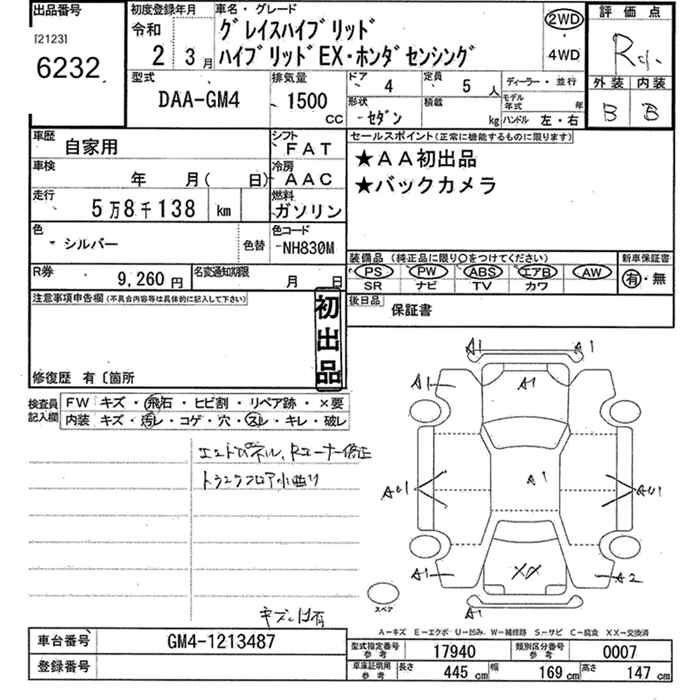 出品番号
[2123]
6232
初度登録年月
令和
2 3月
車名・グレード
グレイスハイブリッド
ハイブリッドEX・ホンダセンシング
2WD
4WD
評価点
外装 内装
B B
型式
DAA-GM4
排気量
1500
CC
ドア 4 定員 5 人
形状 セダン 積載 kg
ディーラー・並行
モデル年式 年
ハンドル 左・右
車歴 自家用
シフト FAT
車検 年 月( 日)
冷房 AAC
走行 5万8千138 km
燃料 ガソリン
色 シルバー 色替
色コード NH830M
R券 9,260円
名変通知期限 月 日
セールスポイント(正常に機能するものに限ります)
★AA初出品
★バックカメラ
装備品 (純正品に限り○をつけてください)
PS PW ABS エアB AW
SR ナビ TV カワ
新車保証書
有・無
後日品 保証書
注意事項申告欄(不具合内容等は具体的に記入して下さい)
初出品
修復歴 有〔箇所
検査員記入欄
FW キズ・飛石・ヒビ割・リペア跡・×要
内装 キズ・汚レ・コゲ・穴・スレ・キレ・破レ
エンドパネル、Rコーナー修正
トランクフロア小曲り
A1 A1
A1 A1
A1
A1 A2
A1
XX
スペア
A-キズ E-エクボ U-凹み W-補修跡 S-サビ C-腐食 XX-交換済
車台番号 GM4-1213487
登録番号
型式指定番号 参考 17940
類別区分番号 参考 0007
車庫証明用 参考 長さ 445 cm 幅 169 cm 高さ 147 cm